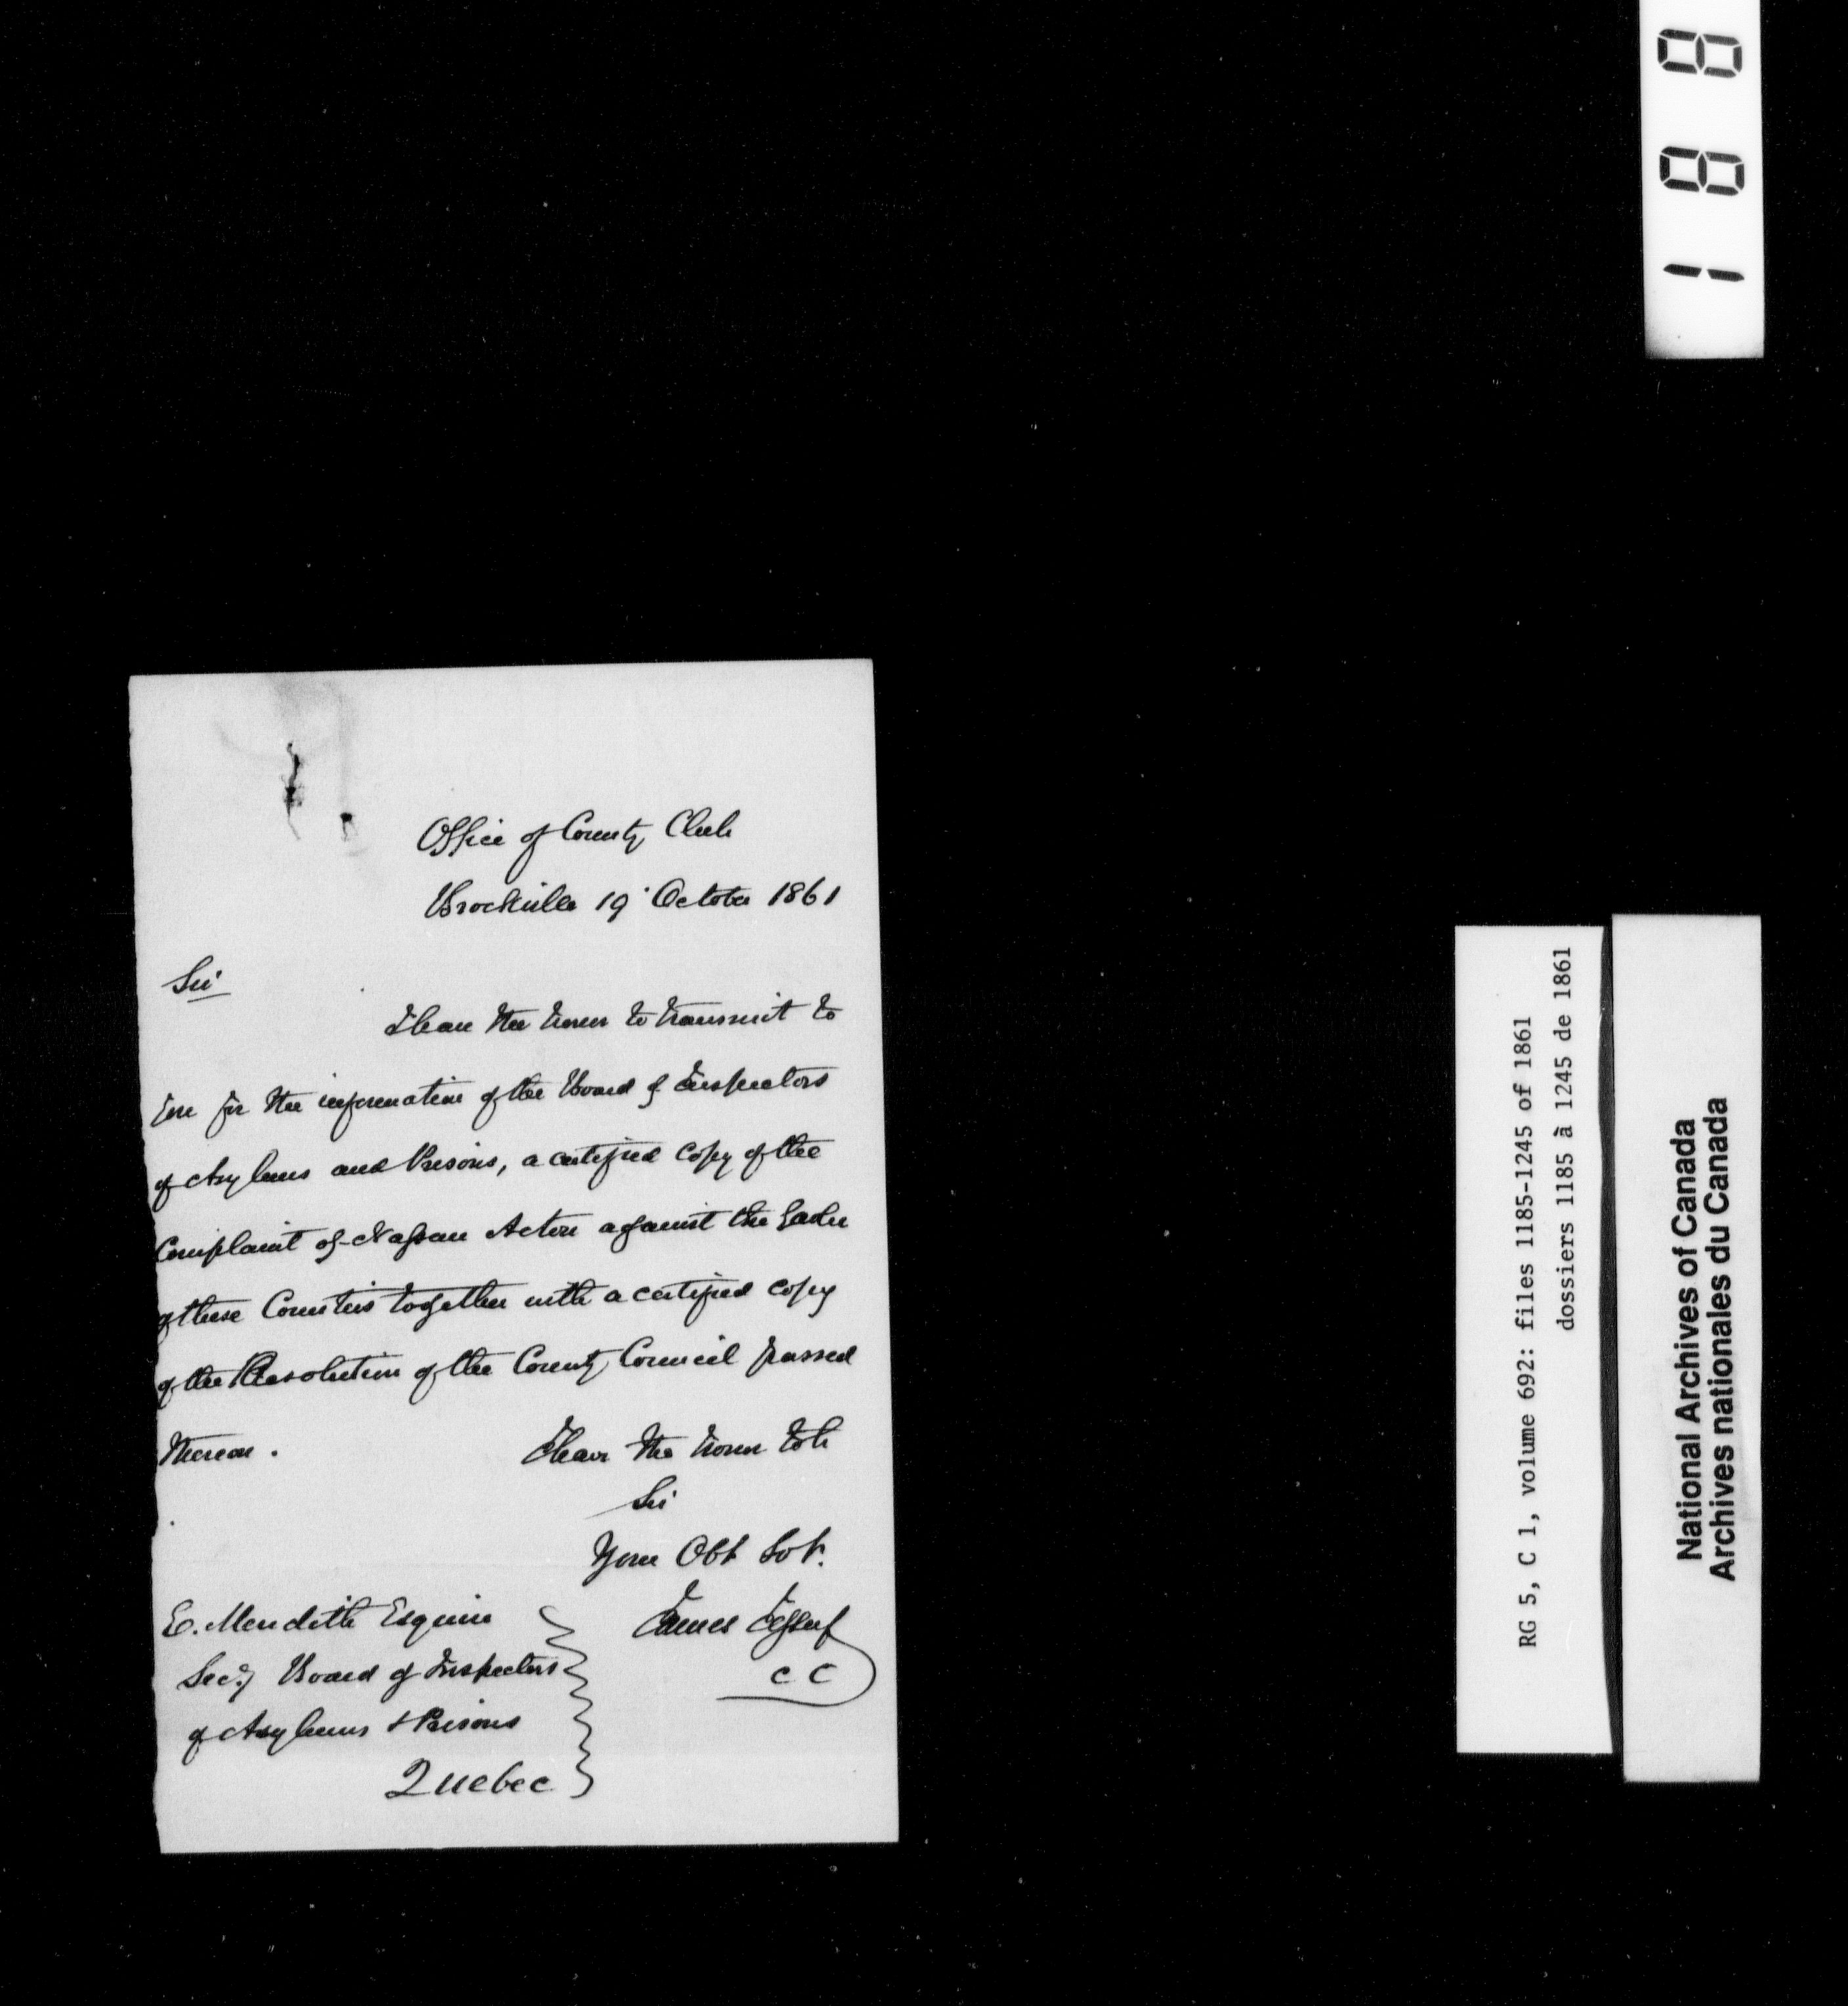 Office of County Clerk
Brockville 19 October 1861
Sir
I have the honor to transmit to
you for the information of the Board of Inspectors
of Asylums and Prisons, a certified copy of the
Complaint of Nassau Acton against the Gaoler
of these Counties together with a certified copy
of the Resolution of the County Council passed
thereon.
I have the honor to be
Sir
Your Obt Svt.
James Jessup
C C
E. Meredith Esquire
Secy Board of Inspectors
of Asylums & Prisons
Quebec
188
RG 5, C 1, volume 692: files 1185-1245 of 1861
dossiers 1185 à 1245 de 1861
National Archives of Canada
Archives nationales du Canada